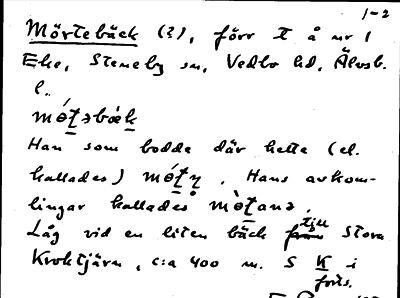 1-2
Mörtebäck (?), förr t å nr 1
Ehe, Steneby sn, Vedbo hd, Älvsb.
l.
mǿt̠əbæk̠
Han som bodde där hette (el.
kallades) mǿt̠n̥. Hans avkom-
lingar kallades mòt̠anə.
Låg vid en liten bäck från till Stora
Kroktjärn, c:a 400 m. S K i
forts.